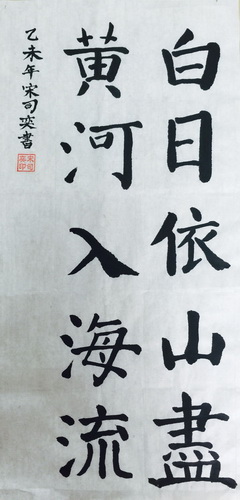 白日依山盡
黄河入海流
乙未年宋司奕書